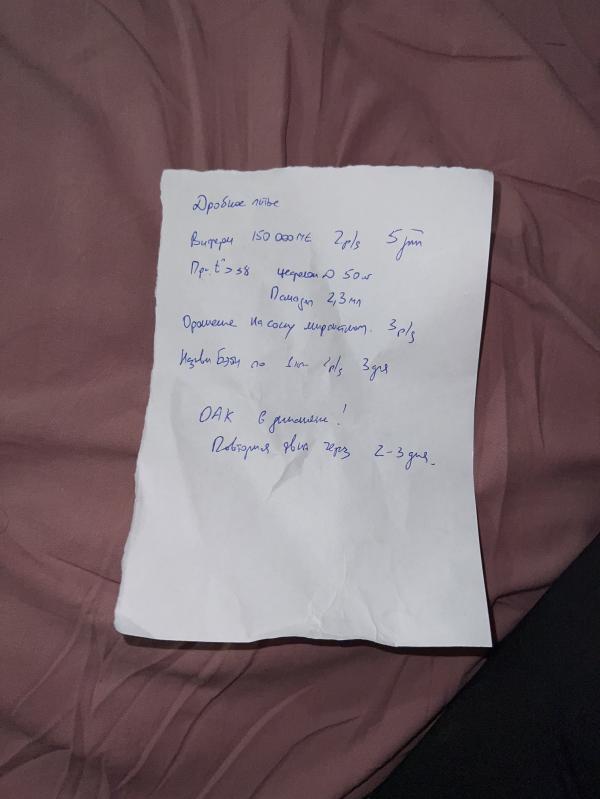 Дробное питье
Виферон 150 000 МЕ 2 р/д 5 дней
При t° > 38 Цефекон D 50 мг
Панадол 2,3 мл
Орошение носа мирамистин. 3 р/д
Називин Бэби по 1 к 2 р/д 3 дня
ОАК в динамике!
Повторная явка через 2-3 дня.